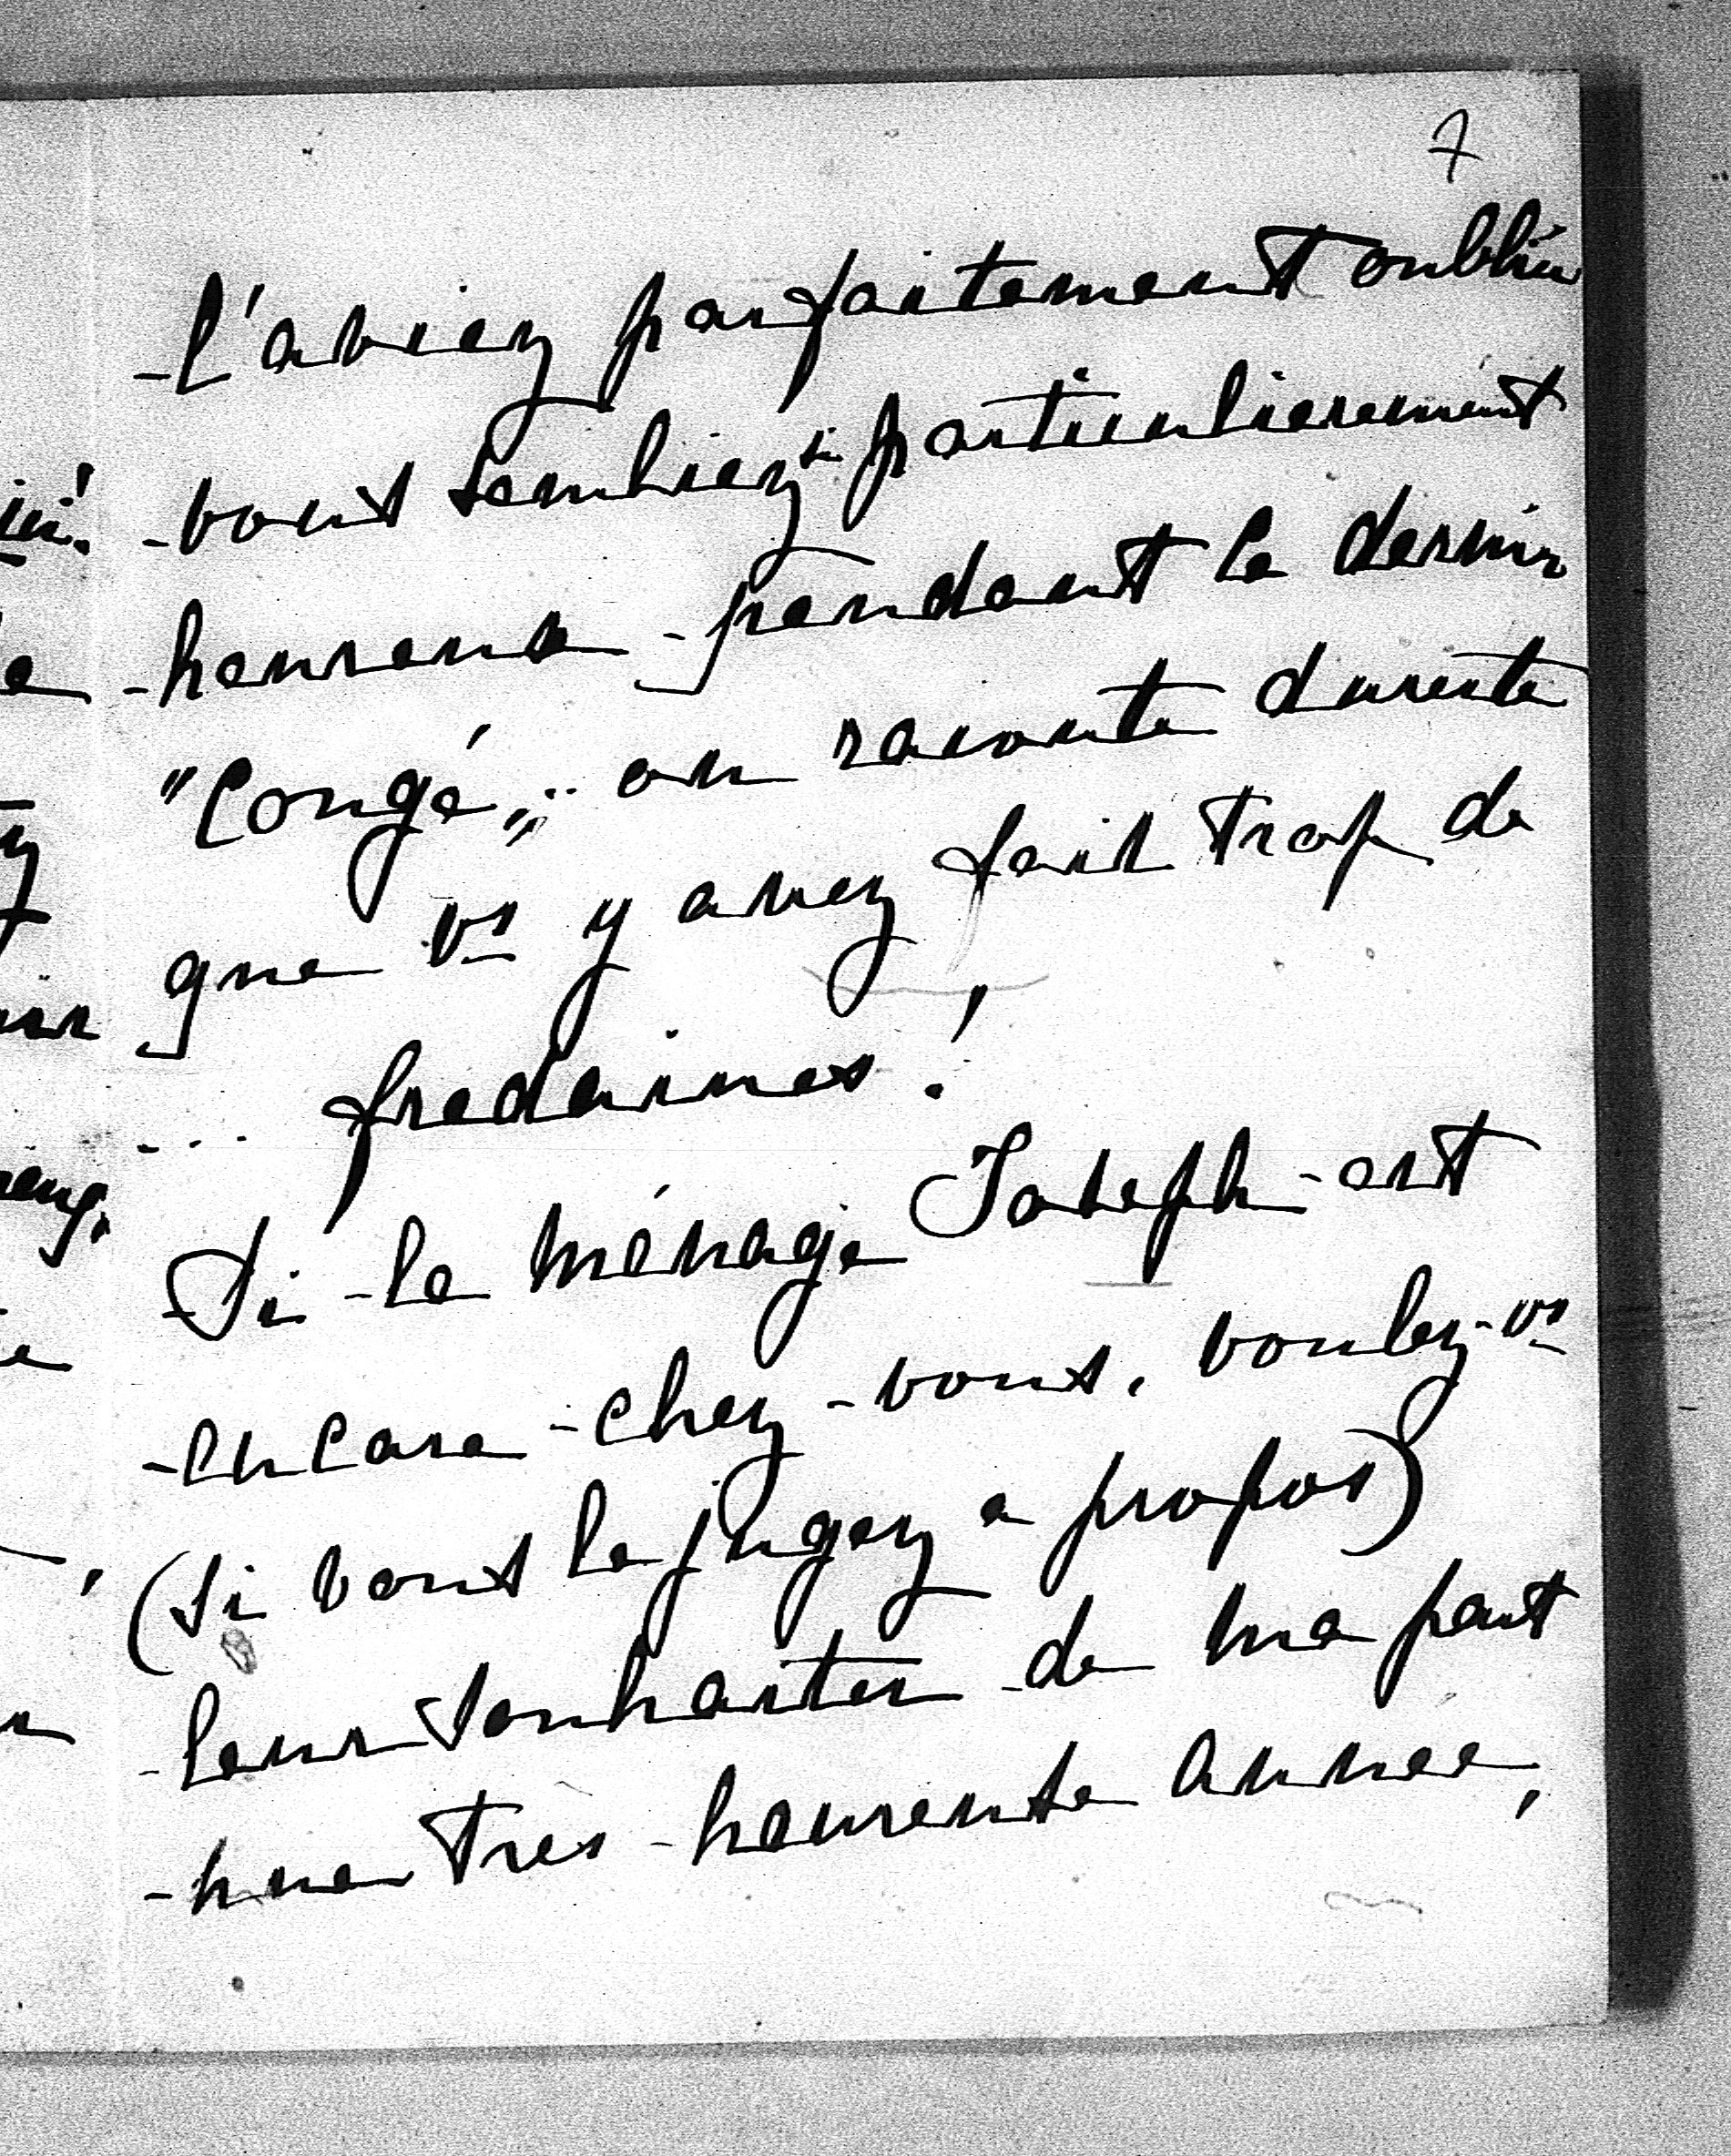 7
l'aviez parfaitement oublié
vous sembliez si particulièrement
heureux pendant le dernier
"Congé" ... on raconte
que vs y avez fait trop de
... fredaines !
Si le ménage Joseph est
encore chez-vous, voulez-vs
(si vous le jugez a propos)
leur souhaiter de ma part
une très heureuse année,